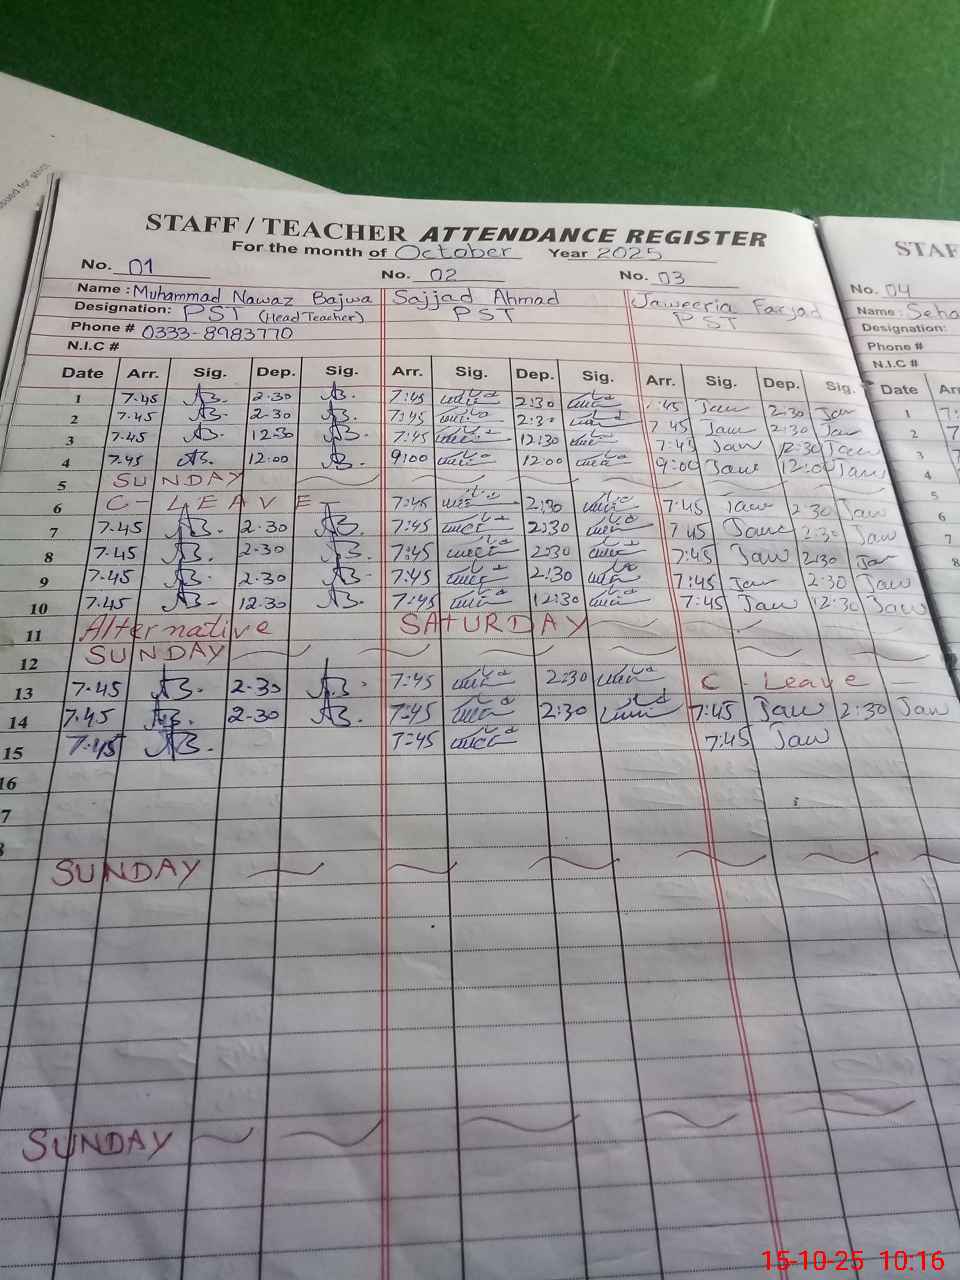 STAFF / TEACHER ATTENDANCE REGISTER STAF
For the month of October Year 2025
No. 01 No. 02 No. 03 No. 04
Name : Muhammad Nawaz Bajwa Sajjad Ahmad Jaweeria Farjad Name : Seha
Designation: PST (Head Teacher) PST PST Designation:
Phone # 0333-8983770 Phone #
N.I.C # N.I.C #
Date Arr. Sig. Dep. Sig. Arr. Sig. Dep. Sig. Arr. Sig. Dep. Sig. Date Arr
1 7-45 AB. 2-30 AB. 7:45 2:30 :45 Jaw 2:30 Jaw 1 7:
2 7-45 AB. 2-30 AB. 7:45 2:30 7 45 Jaw 2:30 Jaw 2 7
3 7-45 AB. 12-30 AB. 7:45 12:30 7:45 Jaw 12:30 Jaw 3
4 7-45 AB. 12:00 AB. 9:00 12:00 9:00 Jaw 12:00 Jaw 4
5 SUNDAY 5
6 C- LEAVE- 7:45 2:30 7:45 Jaw 2 30 Jaw 6
7 7-45 AB. 2-30 AB. 7:45 2:30 7 45 Jaw 2:30 Jaw 7
8 7-45 AB. 2-30 AB. 7:45 2:30 7:45 Jaw 2:30 Jaw 8
9 7-45 AB. 2-30 AB. 7:45 2:30 7:45 Jaw 2:30 Jaw
10 7-45 AB. 12-30 AB. 7:45 12:30 7:45 Jaw 12:30 Jaw
11 Alternative SATURDAY
12 SUNDAY
13 7-45 AB. 2-30 AB. 7:45 2:30 C - Leave
14 7-45 AB. 2-30 AB. 7:45 2:30 7:45 Jaw 2:30 Jaw
15 7-45 AB. 7:45 7:45 Jaw
16
7
8
SUNDAY
SUNDAY
15-10-25 10:16